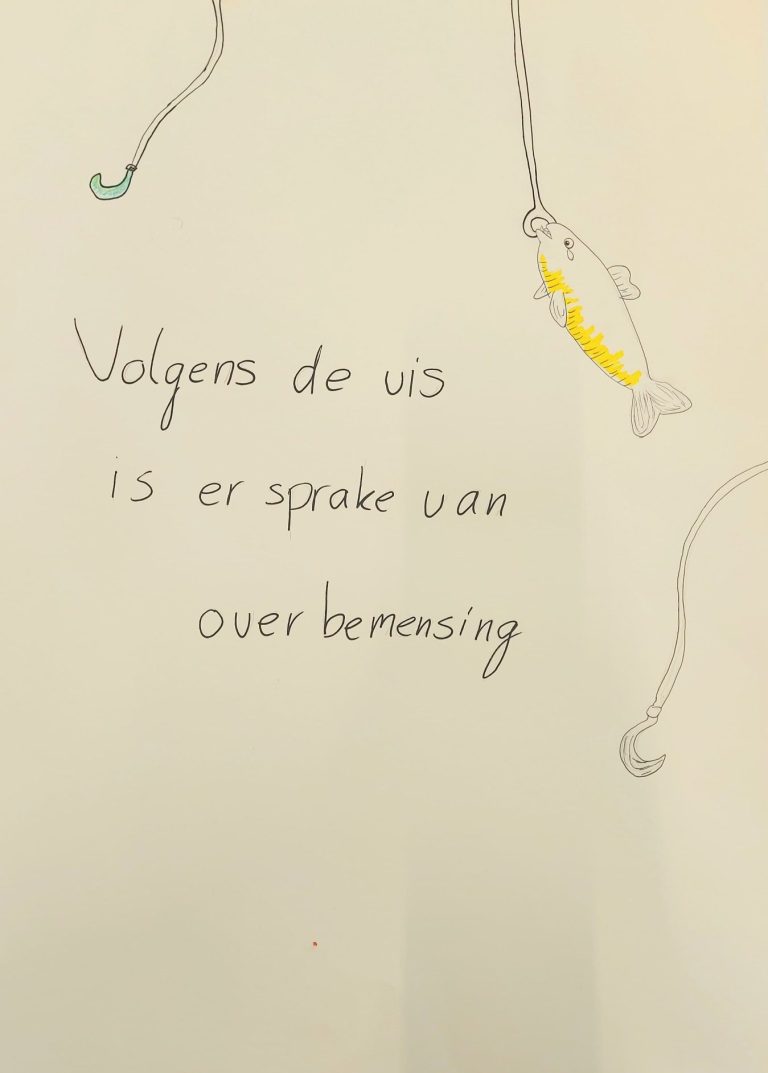 Volgens de vis
is er sprake van
over bemensing